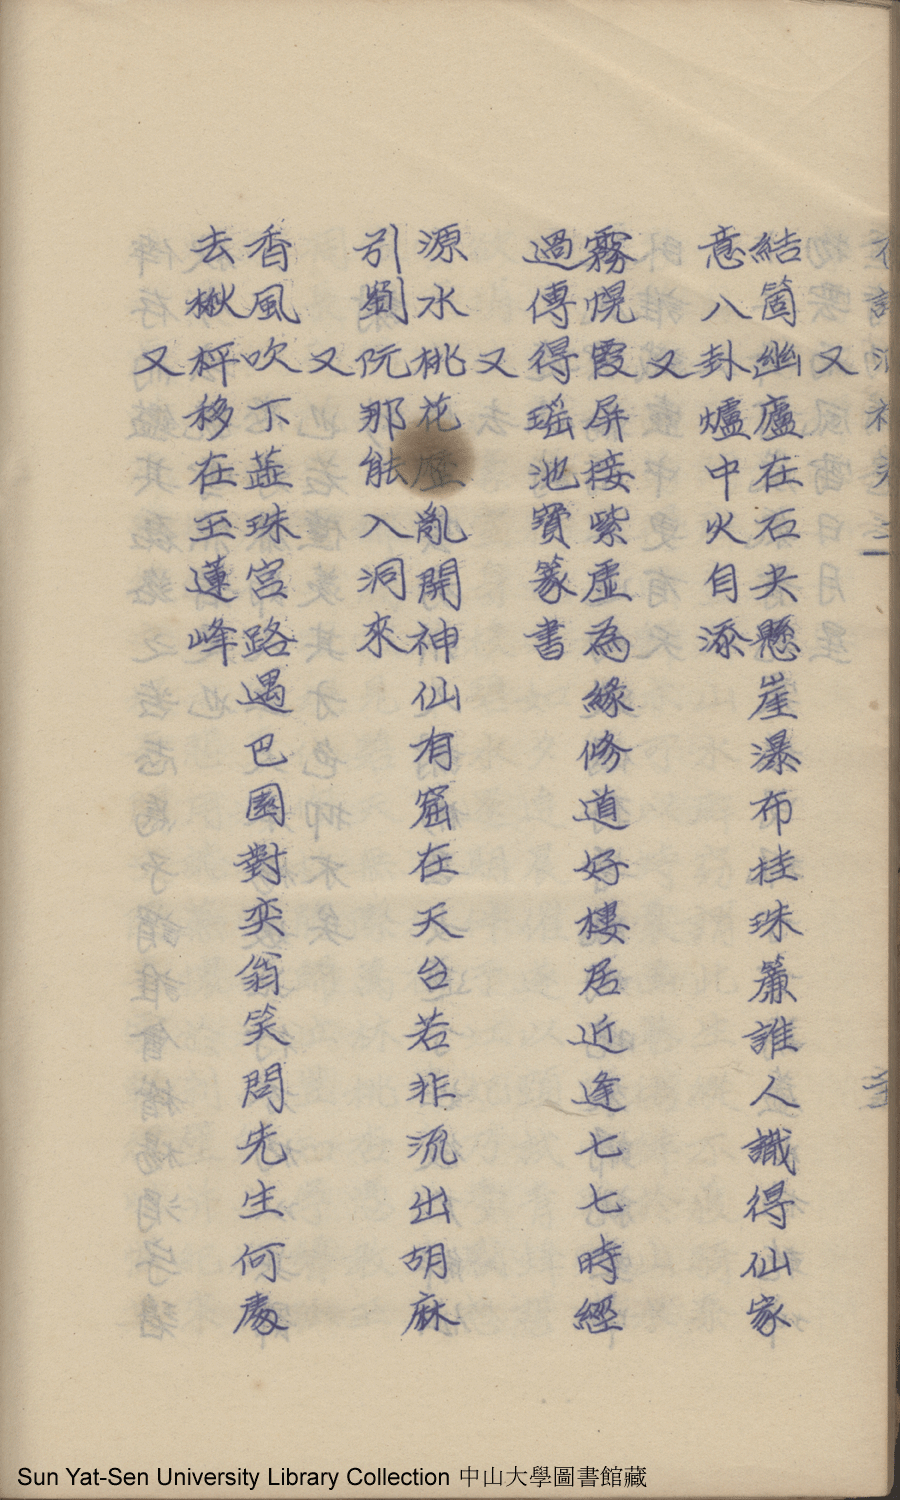 又
結箇幽廬在石夾懸崖瀑布挂珠簾誰人識得仙家
意八卦爐中火自添
又
霧幌霞屏接紫虛為緣修道好樓居近逢七七時經
過傳得瑶池寶篆書
又
源水桃花歷亂開神仙有窟在天台若非流出胡麻
引劉阮那能入洞來
又
香風吹下蕋珠宮路遇巴園對奕翁笑問先生何處
去楸枰移在玉蓮峰
又
Sun Yat-Sen University Library Collection 中山大學圖書館藏